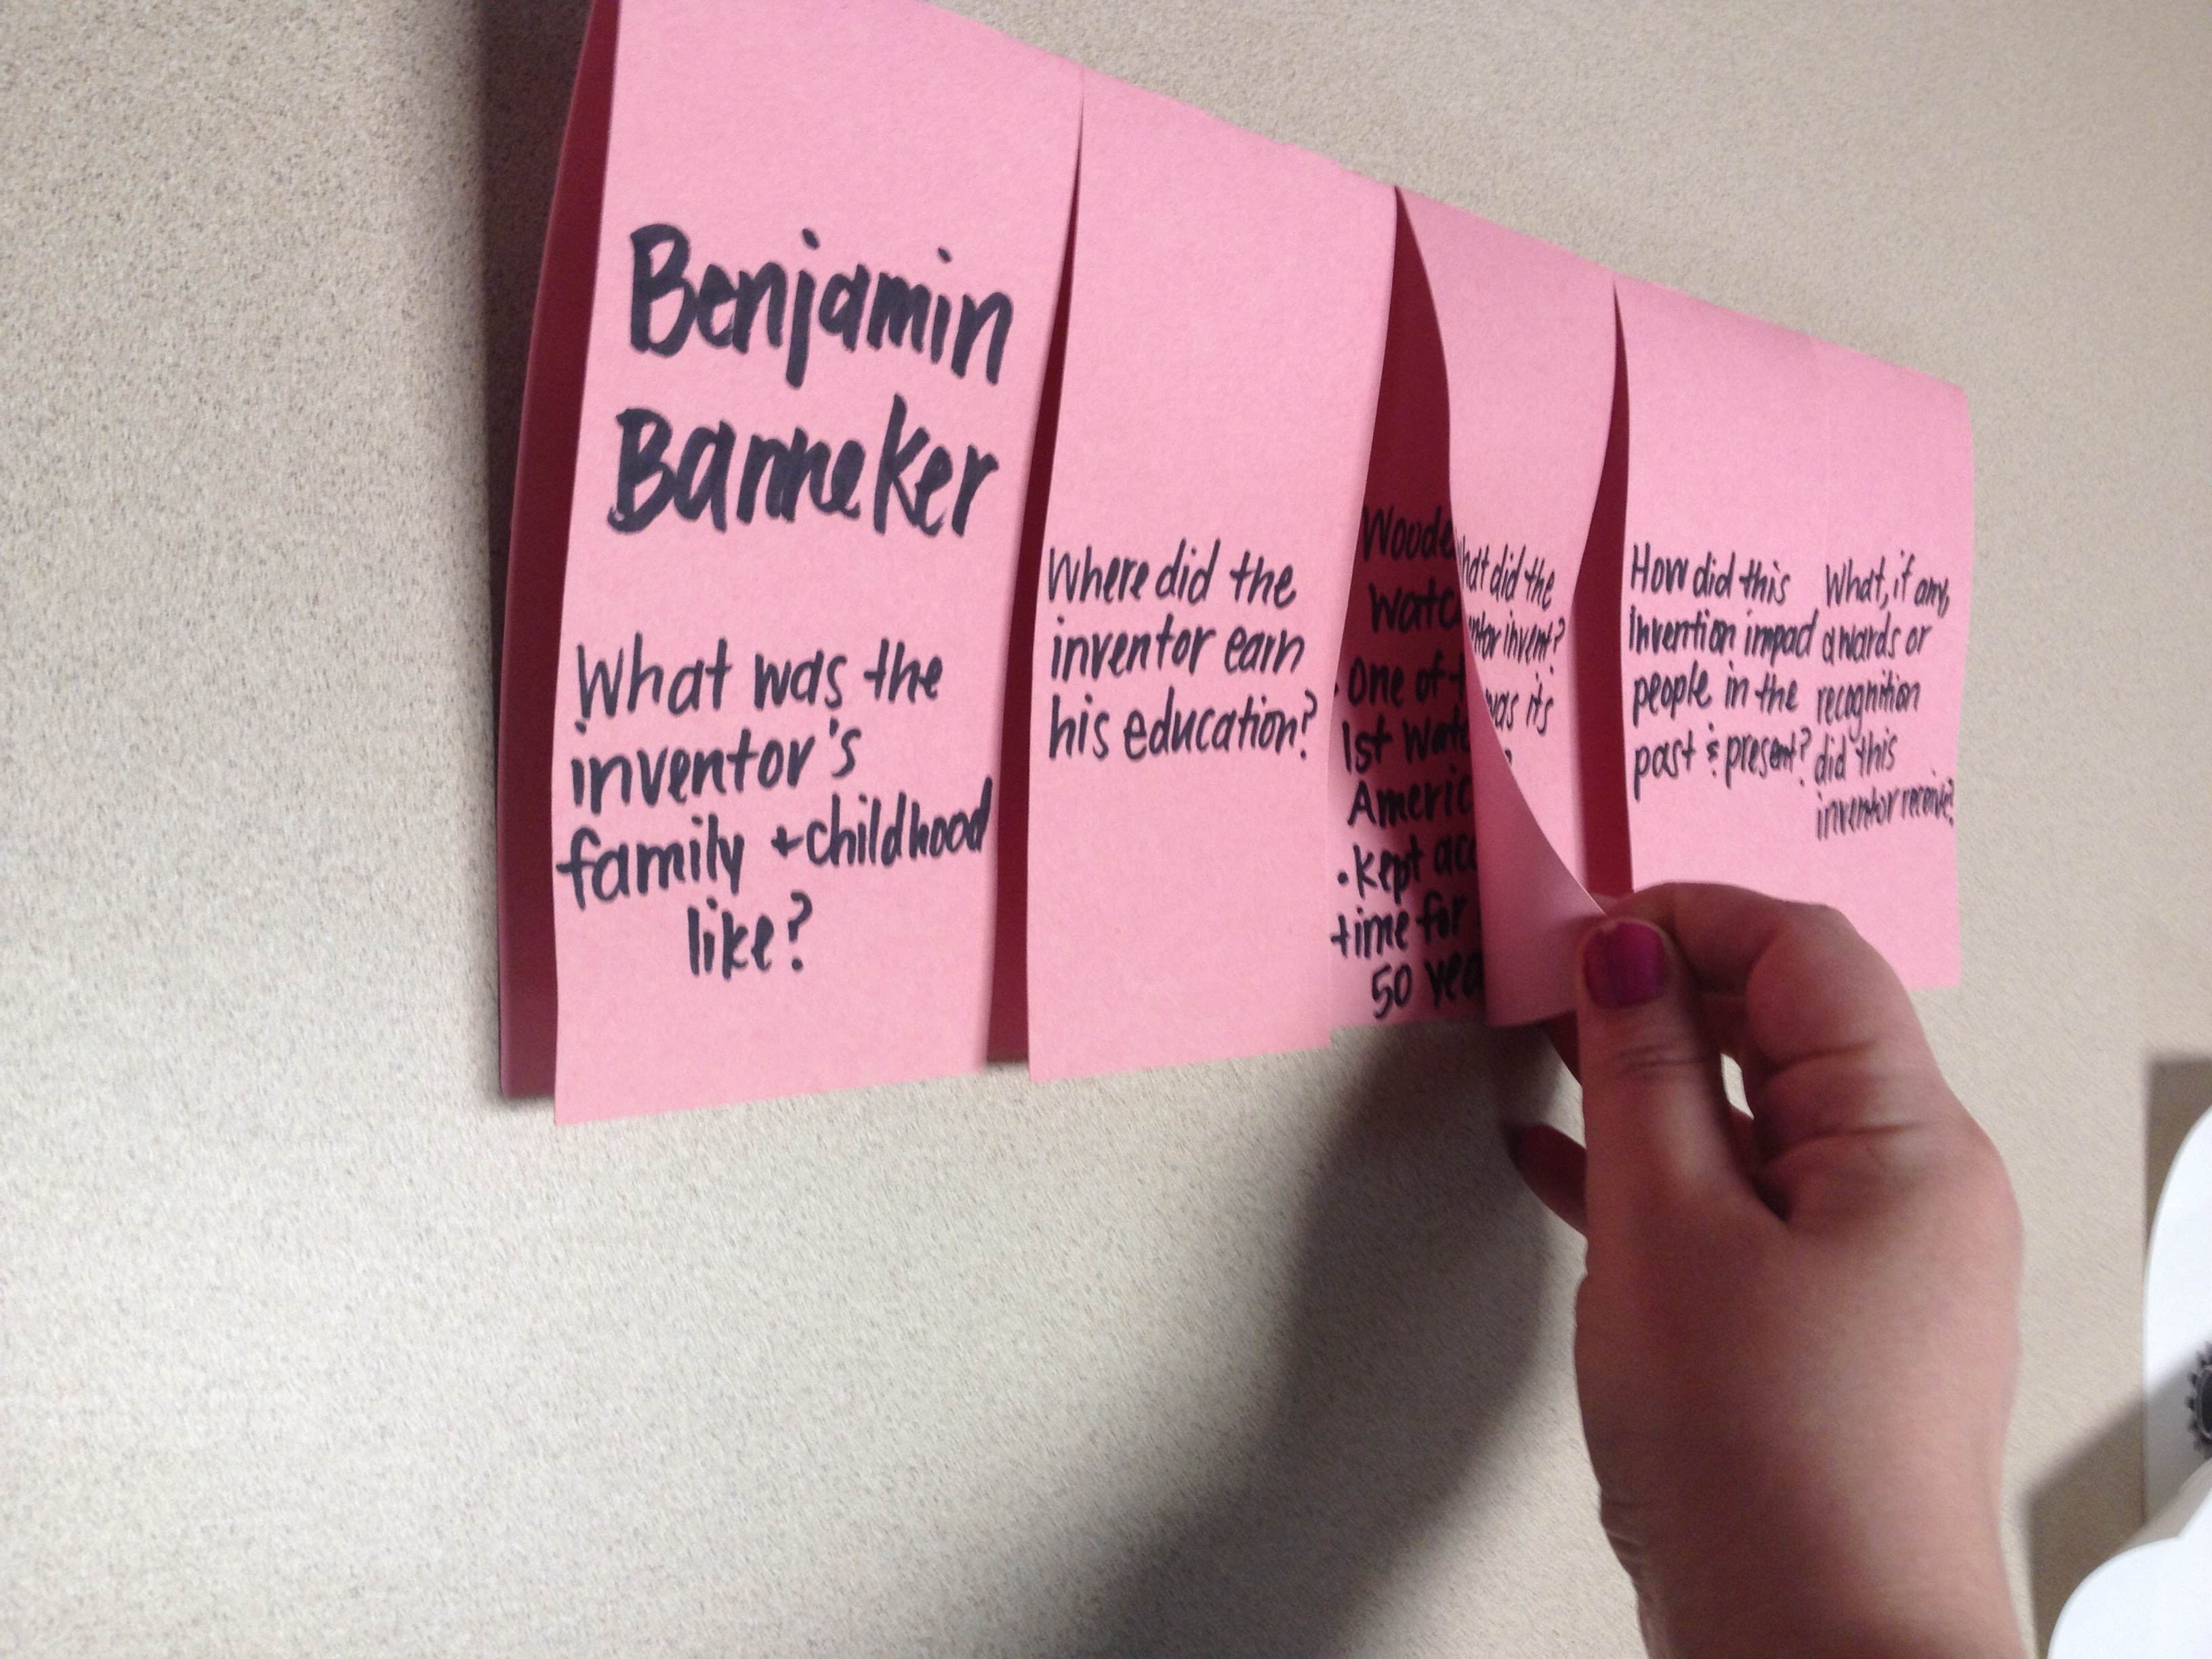 Benjamin
Banneker
What was the
inventor's
family + childhood
like?
Where did the
inventor earn
his education?
One of
1st
kept
time for
50
did the
invent?
was its
How did this
invention impact
people in the
past & present?
What, if any,
awards or
recognition
did this
inventor receive?